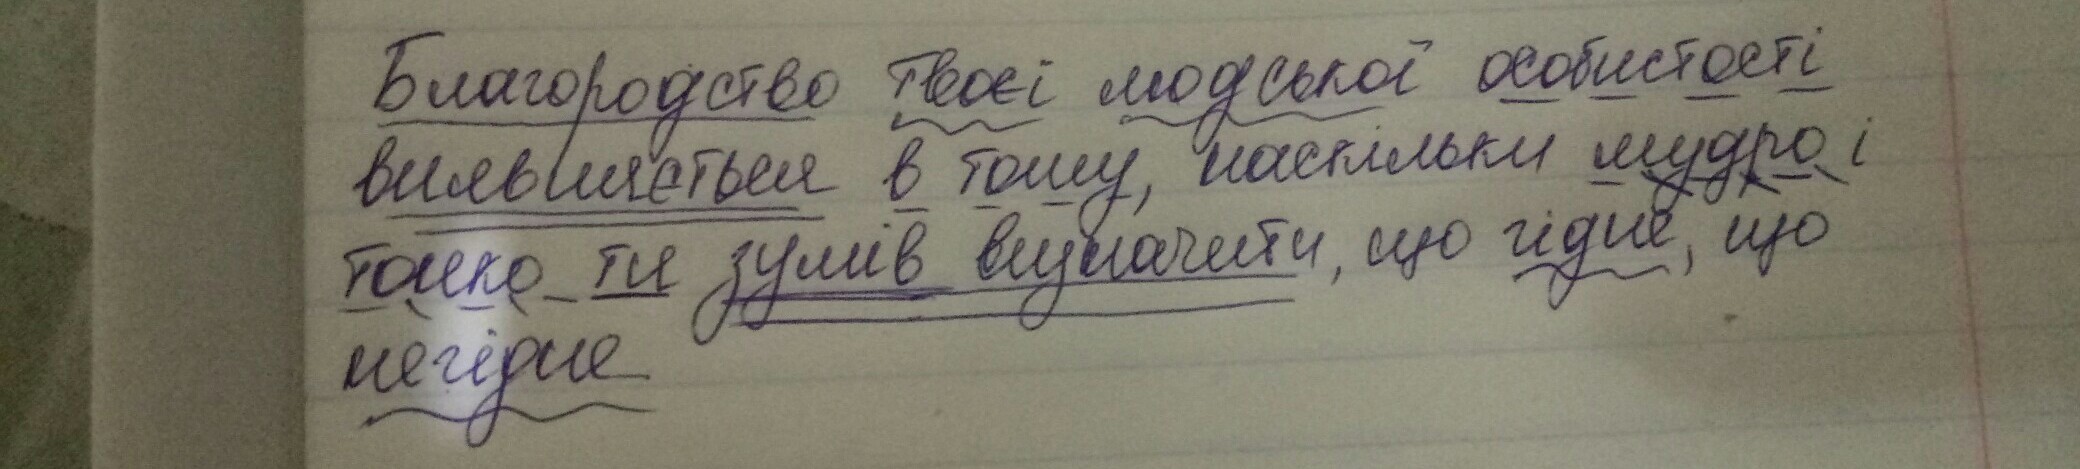 Благородство твоєї людської особистості
виявляється в тому, наскільки мудро і
тонко ти зумів визначити, що гідне, що
негідне